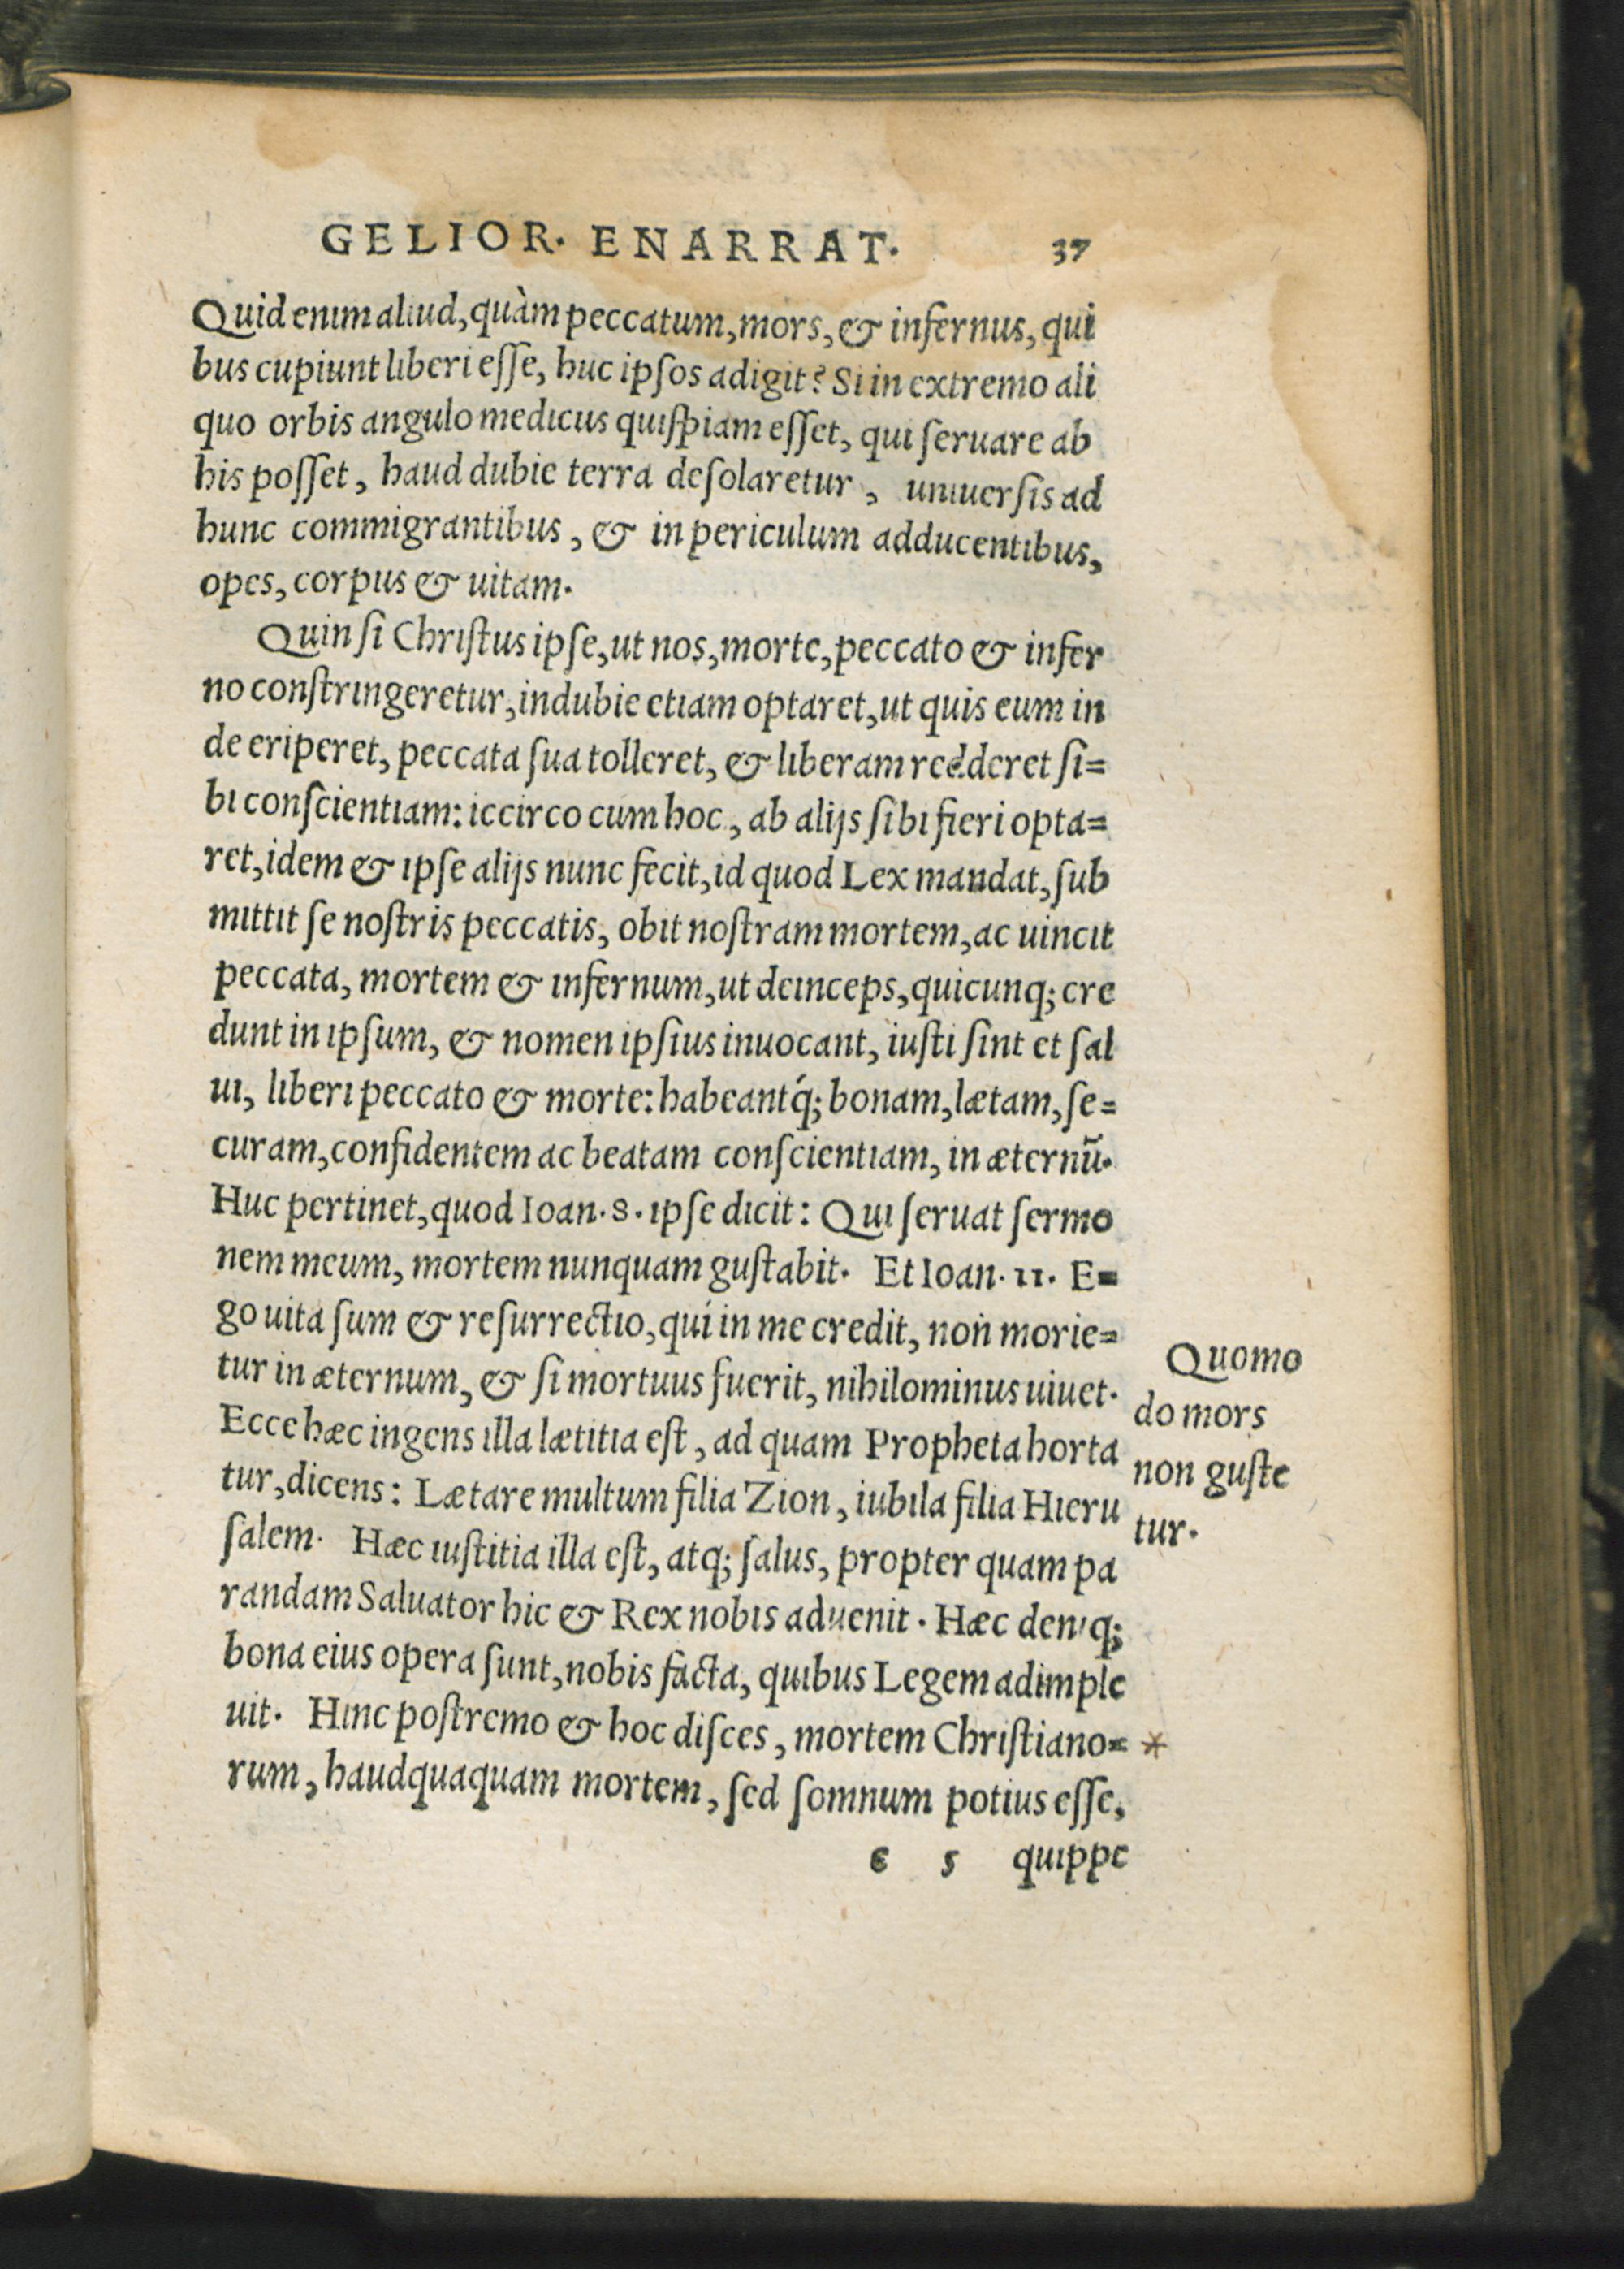 GELIOR. ENARRAT. 37
Quid enim aliud, quàm peccatum, mors, & infernus, qui
bus cupiunt liberi eſſe, huc ipſos adigit? Si in extremo ali
quo orbis angulo medicus quiſpiam eſſet, qui ſeruare ab
his poſſet, haud dubie terra deſolaretur, uniuerſis ad
hunc commigrantibus, & in periculum adducentibus,
opes, corpus & uitam.
Quin ſi Chriſtus ipſe, ut nos, morte, peccato & infer
no conſtringeretur, indubie etiam optaret, ut quis eum in
de eriperet, peccata ſua tolleret, & liberam redderet ſi=
bi conſcientiam: iccirco cum hoc, ab alijs ſibi fieri opta=
ret, idem & ipſe alijs nunc fecit, id quod Lex mandat, ſub
mittit ſe noſtris peccatis, obit noſtram mortem, ac uincit
peccata, mortem & infernum, ut deinceps, quicunq; cre
dunt in ipſum, & nomen ipſius inuocant, iuſti ſint et ſal
ui, liberi peccato & morte: habeantq́; bonam, lætam, ſe=
curam, confidentem ac beatam conſcientiam, in æternũ.
Huc pertinet, quod Ioan. 8. ipſe dicit: Qui ſeruat ſermo
nem meum, mortem nunquam guſtabit. Et Ioan. 11. E=
go uita ſum & reſurrectio, qui in me credit, non morie=
tur in æternum, & ſi mortuus fuerit, nihilominus uiuet.
Ecce hæc ingens illa lætitia eſt, ad quam Propheta horta
tur, dicens: Lætare multum filia Zion, iubila filia Hieru
ſalem. Hæc iuſtitia illa eſt, atq; ſalus, propter quam pa
randam Saluator hic & Rex nobis aduenit. Hæc deniq;
bona eius opera ſunt, nobis facta, quibus Legem adimple
uit. Hinc poſtremo & hoc diſces, mortem Chriſtiano= *
rum, haudquaquam mortem, ſed ſomnum potius eſſe,
e 5 quippe
Quomo
do mors
non guſte
tur.